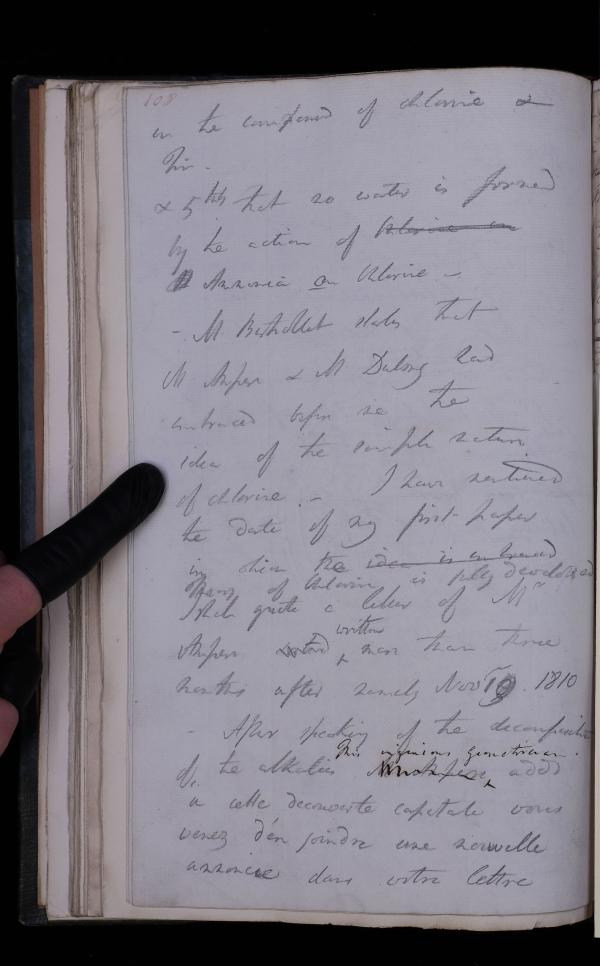 108
in the compound of chlorine &
Tin.
& 5thly that no water is formed
by the action of Chlorine on
Ammonia on Chlorine -
- M Berthollet states that
M Ampere & M Dulong had
embraced before me the
idea of the simple nature
of chlorine. - I have mentioned
the date of my first paper
in which the idea is embraced
Theory of Chlorine is fully developed
I shall quote a letter of Mr
written
Ampere more than three
months after namely Novr 1810
- After speaking of the decomposition
This ingenious geometrician
of the alkalies adds
a cette decouverte capitale vous
venez d'en joindre une nouvelle
annoncee dans votre lettre